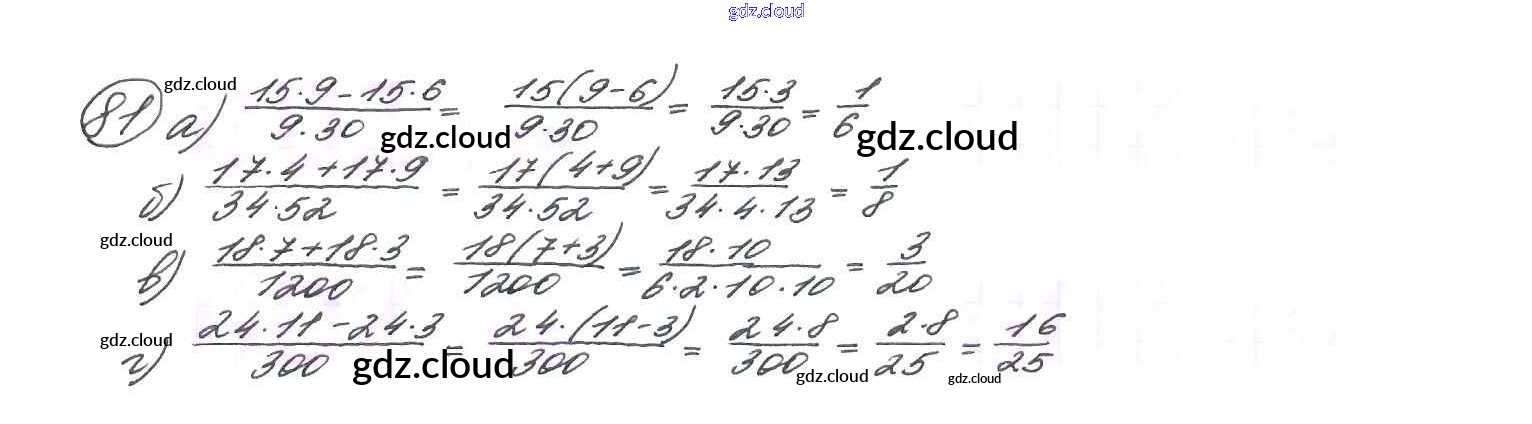 gdz.cloud
81 а) (15·9-15·6)/(9·30) = 15(9-6)/(9·30) = (15·3)/(9·30) = 1/6
gdz.cloud
gdz.cloud
gdz.cloud
б) (17·4+17·9)/(34·52) = 17(4+9)/(34·52) = (17·13)/(34·4·13) = 1/8
gdz.cloud
в) (18·7+18·3)/1200 = 18(7+3)/1200 = (18·10)/(6·2·10·10) = 3/20
г) (24·11-24·3)/300 = 24·(11-3)/300 = (24·8)/300 = (2·8)/25 = 16/25
gdz.cloud
gdz.cloud
gdz.cloud
gdz.cloud